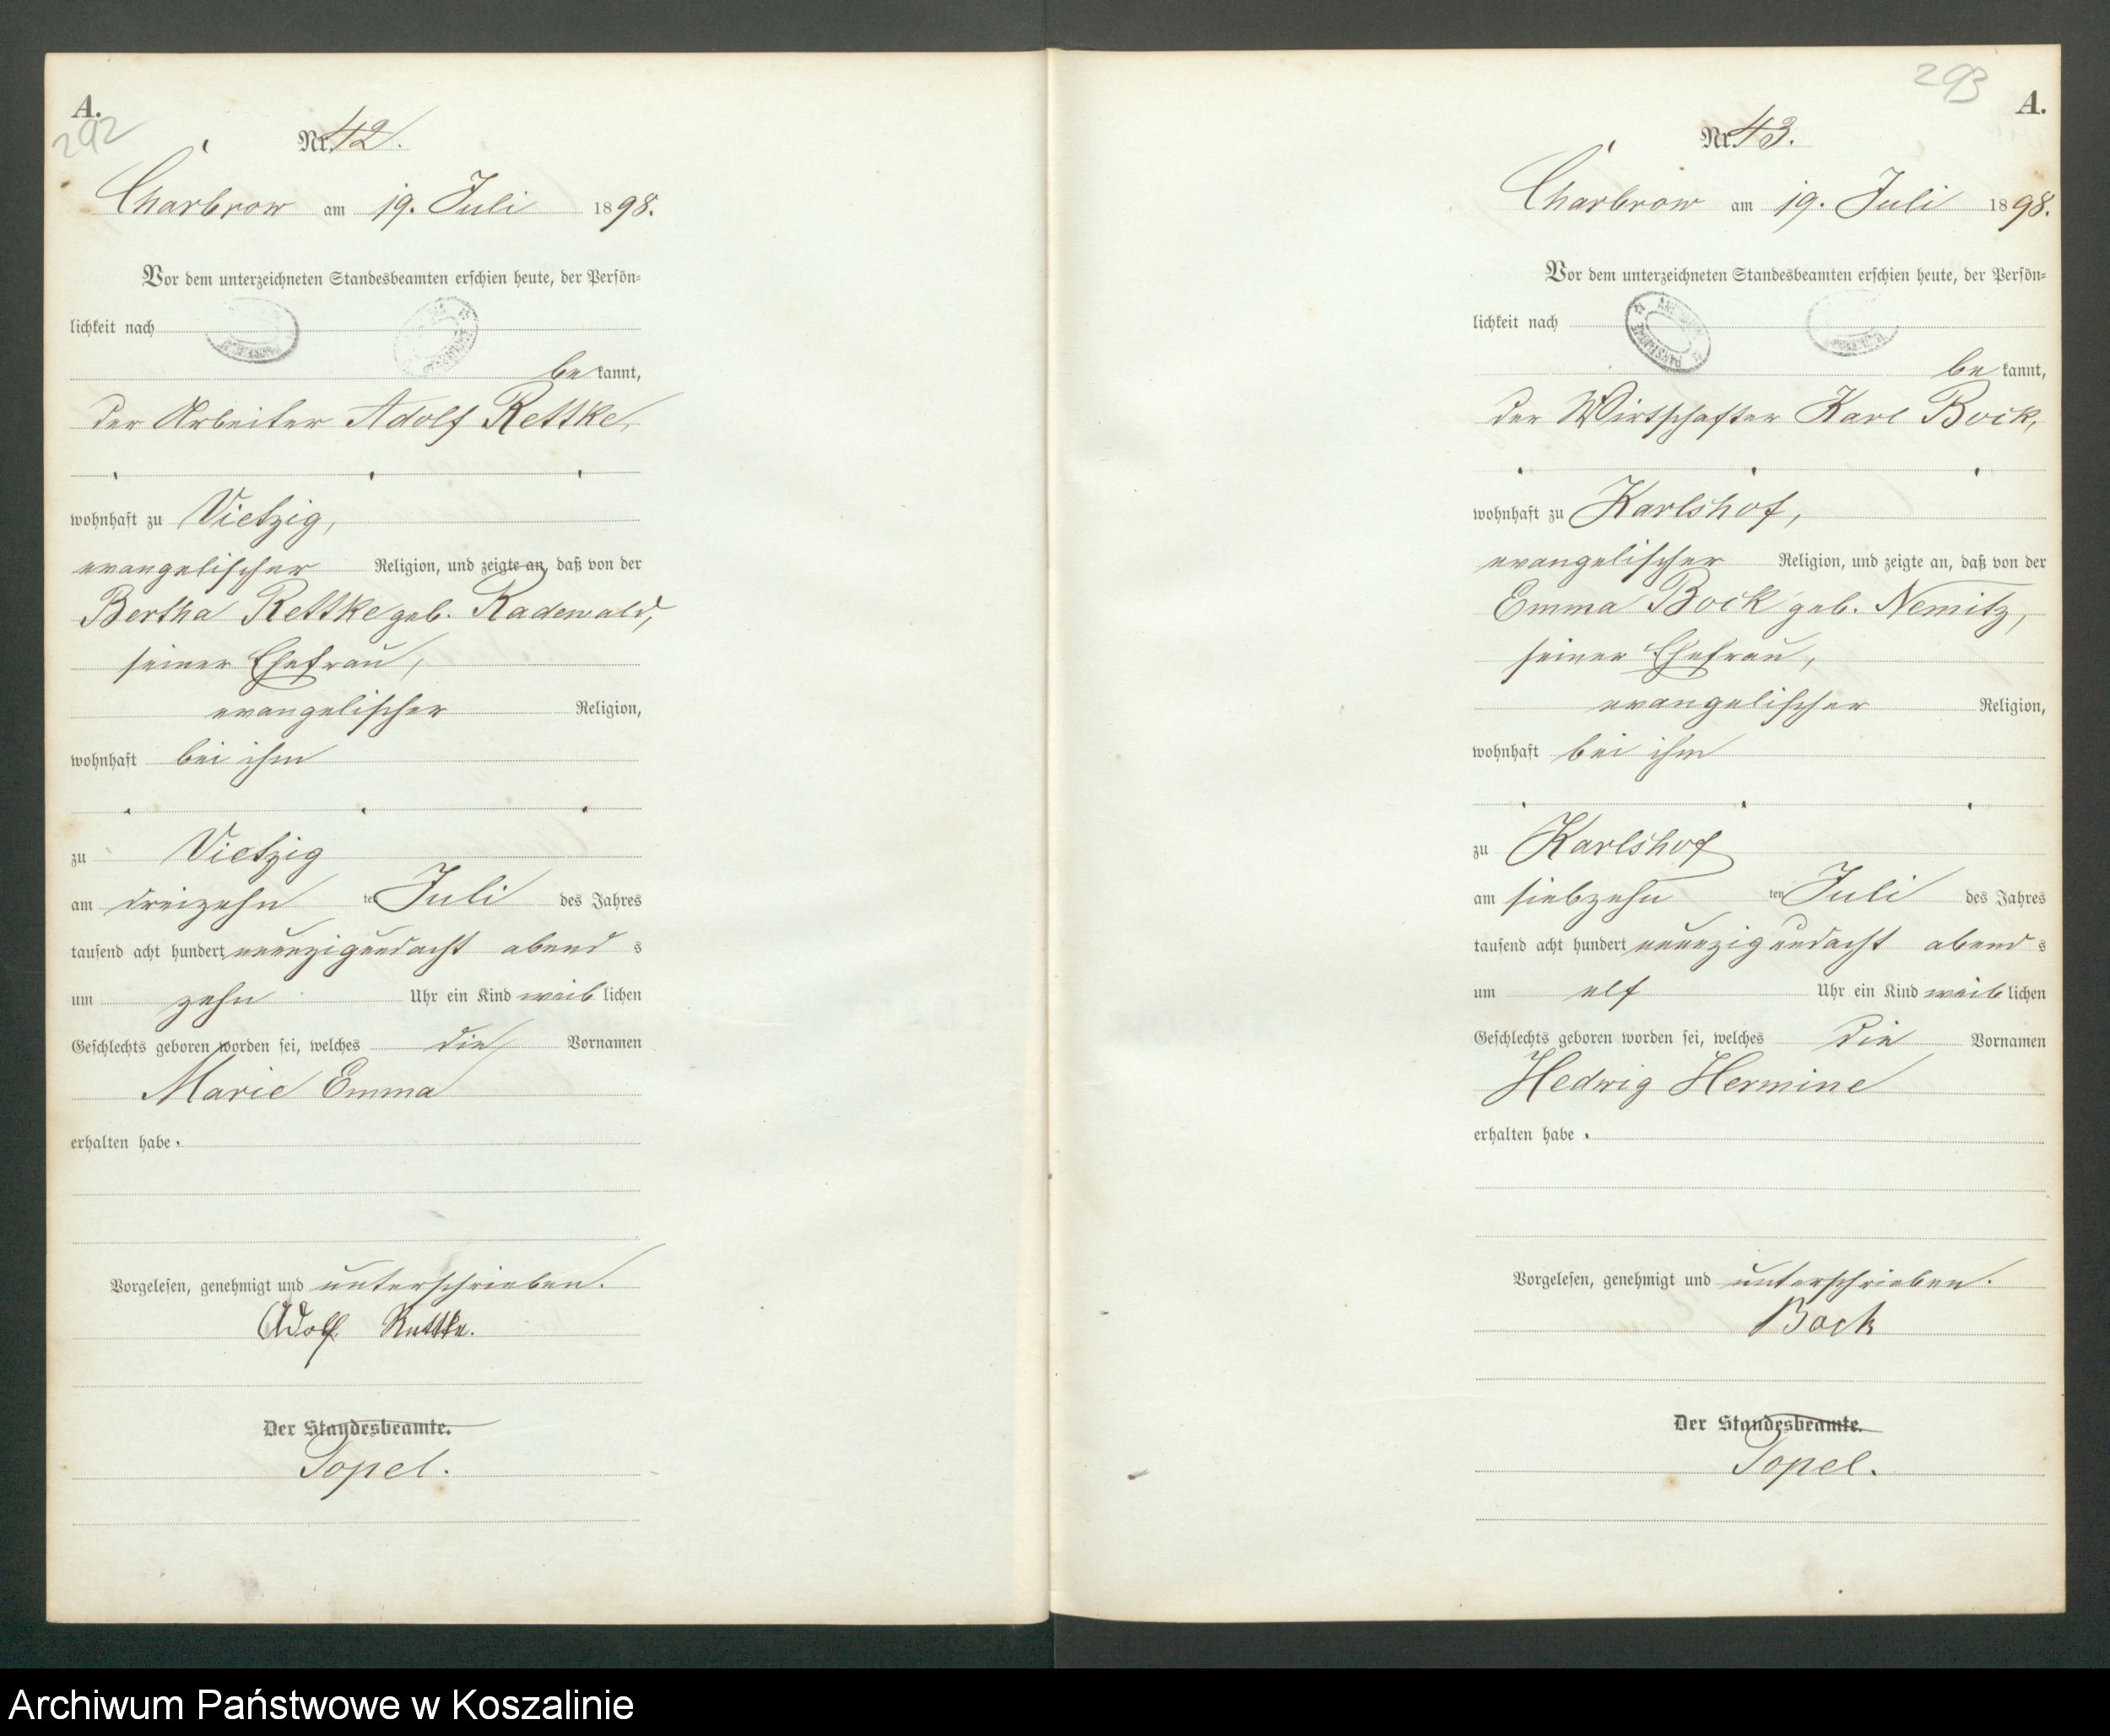 A.
292
Nr. 42.
Charbrow am 19. Juli 1898.
Vor dem unterzeichneten Standesbeamten erschien heute, der Persön-
lichkeit nach
bekannt,
der Arbeiter Adolf Rettke,
wohnhaft zu Vietzig,
evangelischer Religion, und zeigte an, daß von der
Bertha Rettke geb. Radewald,
seiner Ehefrau,
evangelischer Religion,
wohnhaft bei ihm
zu Vietzig
am dreizehn ten Juli des Jahres
tausend acht hundert neunzigundacht abend s
um zehn Uhr ein Kind weib lichen
Geschlechts geboren worden sei, welches die Vornamen
Marie Emma
erhalten habe.
Vorgelesen, genehmigt und unterschrieben.
Adolf Rettke.
Der Standesbeamte.
Topel.
293
A.
Nr. 43.
Charbrow am 19. Juli 1898.
Vor dem unterzeichneten Standesbeamten erschien heute, der Persön-
lichkeit nach
bekannt,
der Wirtschafter Karl Bock,
wohnhaft zu Karlshof,
evangelischer Religion, und zeigte an, daß von der
Emma Bock geb. Nemitz,
seiner Ehefrau,
evangelischer Religion,
wohnhaft bei ihm
zu Karlshof
am siebzehn ten Juli des Jahres
tausend acht hundert neunzigundacht abend s
um elf Uhr ein Kind weib lichen
Geschlechts geboren worden sei, welches die Vornamen
Hedwig Hermine
erhalten habe.
Vorgelesen, genehmigt und unterschrieben.
Bock
Der Standesbeamte.
Topel.
Archiwum Państwowe w Koszalinie